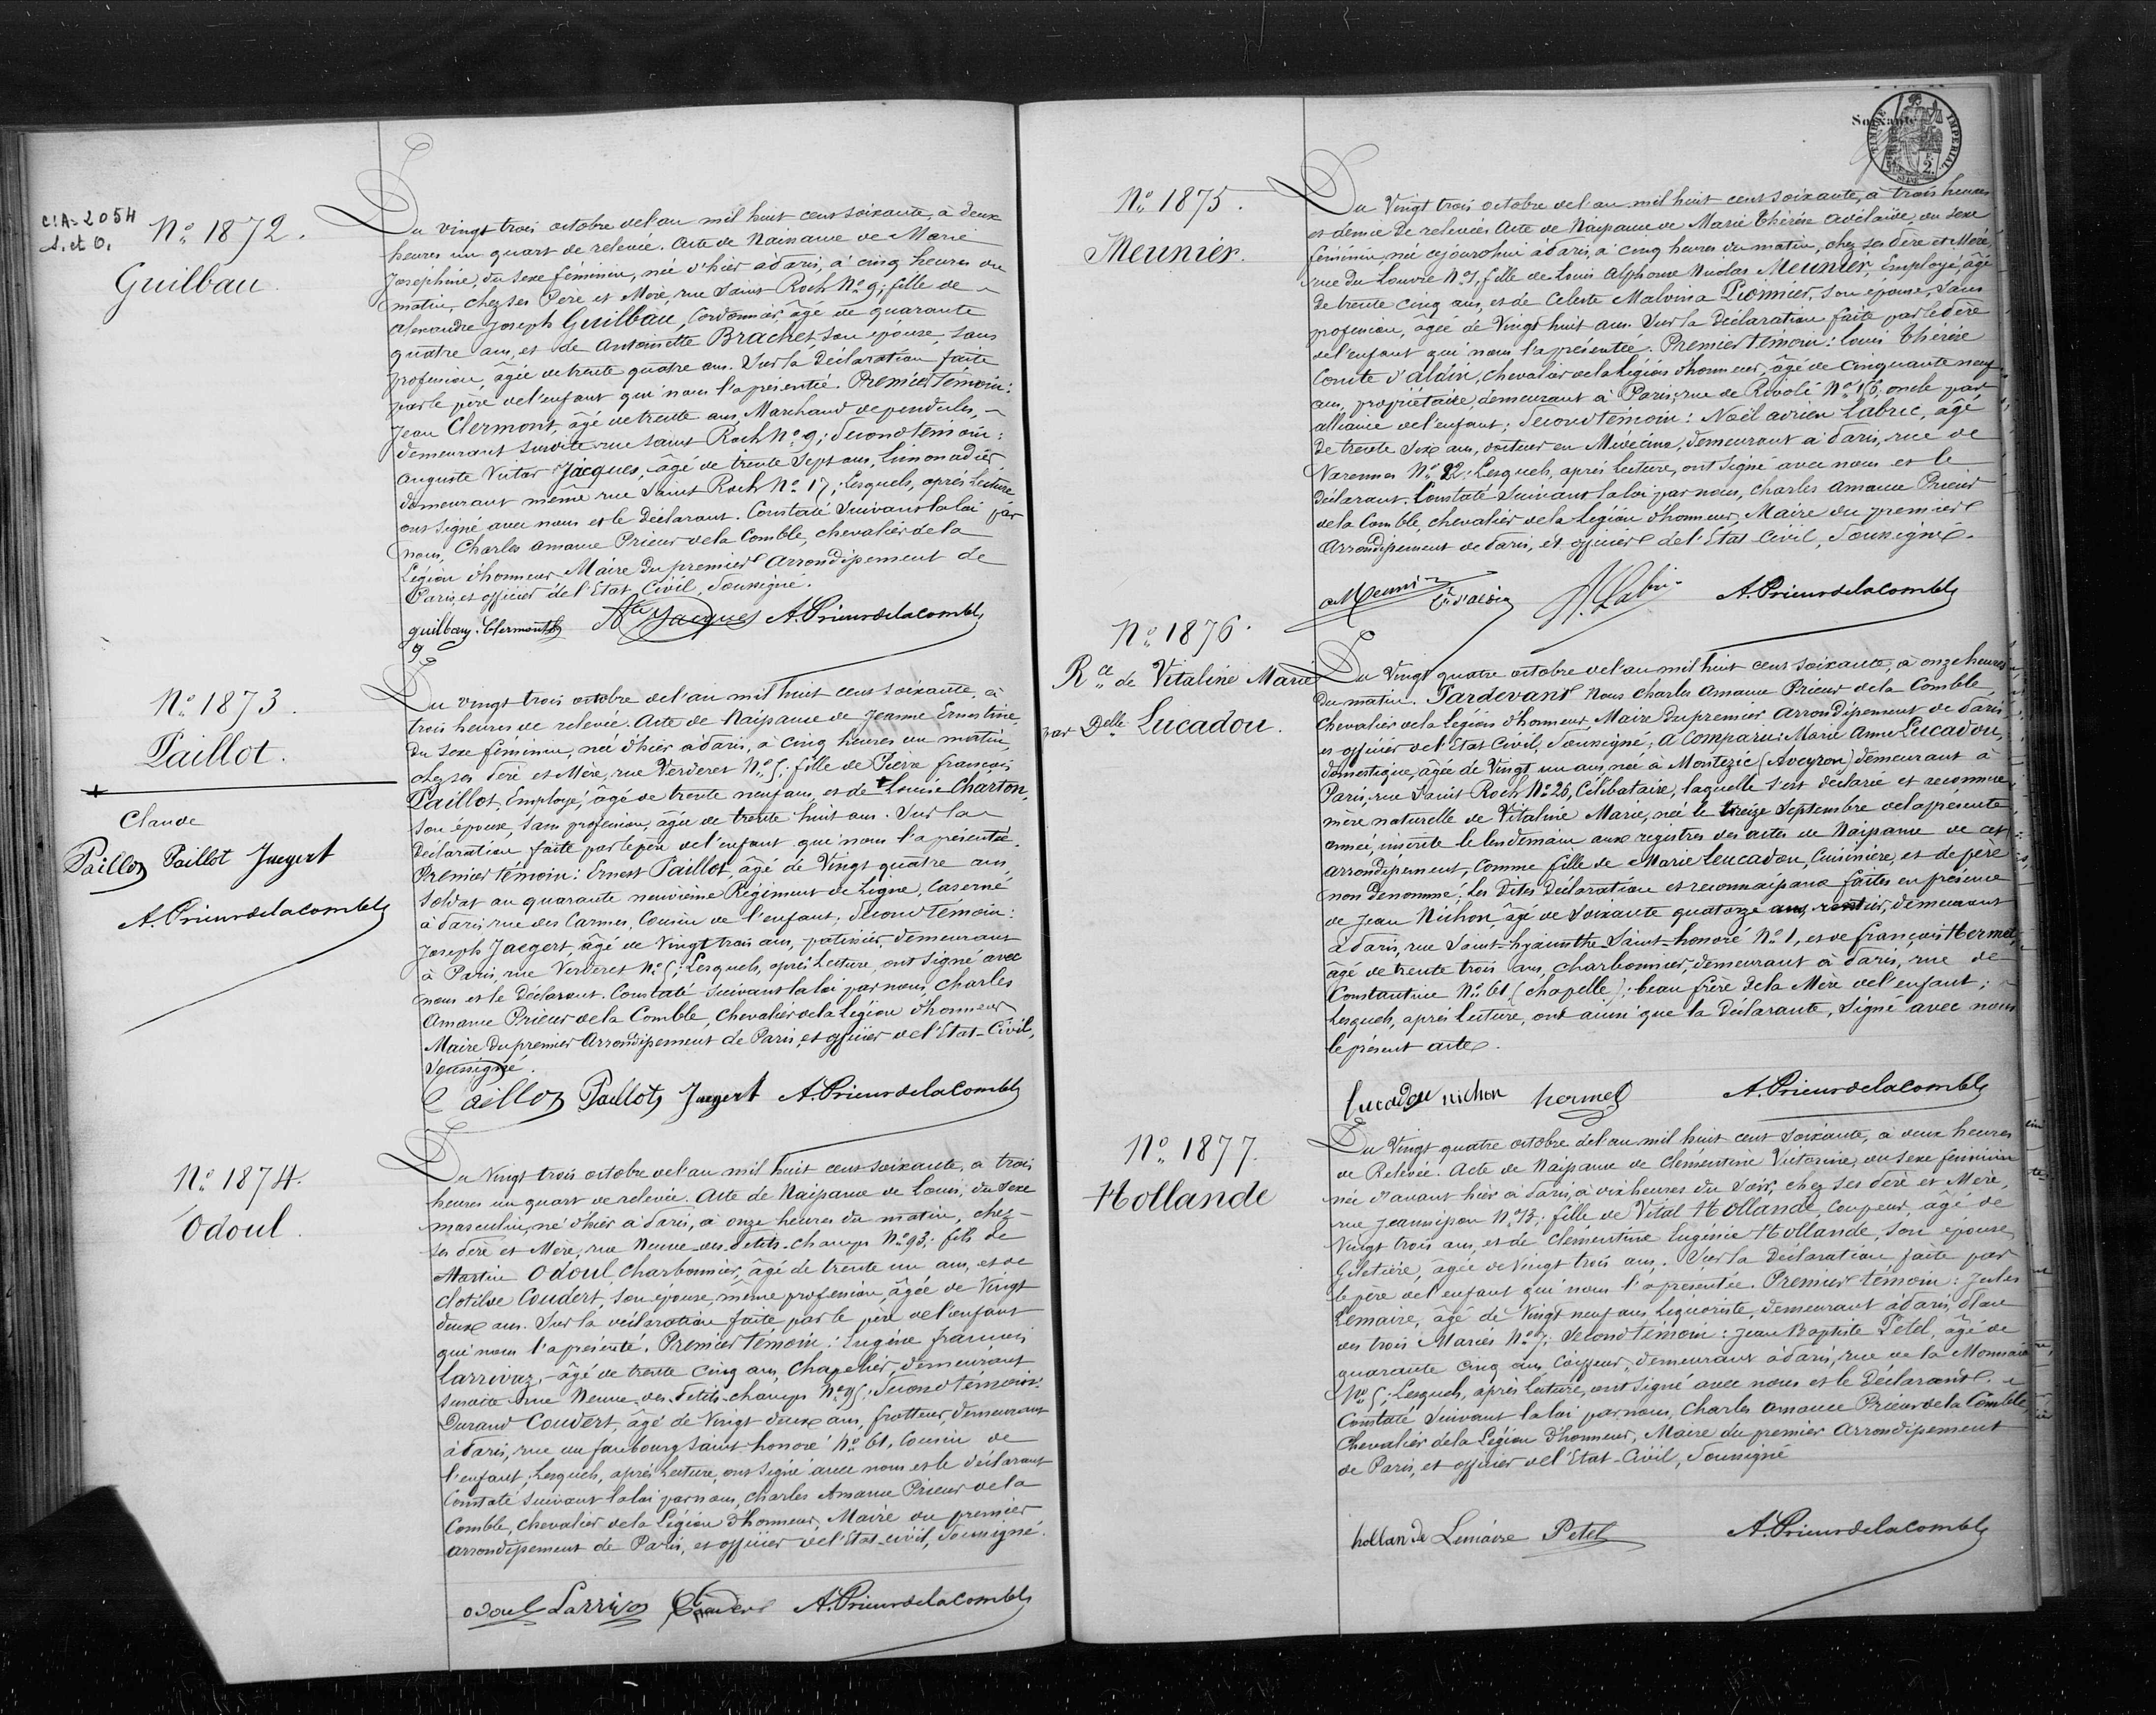 C.A=2054
S. et O.
No. 1872.
Guilbau.
Du vingt trois octobre de l'an mil huit cent soixante, à deux
heures un quart de relevée. Acte de Naissance de Marie
Joséphine, du sexe féminin, née d'hier à Paris, à cinq heures du
matin, chez ses Père et Mère, rue Saint Roch No. 9; fille de
Alexandre Joseph Guilbau, Cordonnier, âgé de quarante
quatre ans, et de Antoinette Brachet, son épouse, sans
profession, âgée de trente quatre ans. Sur la Déclaration faite
par le père de l'enfant qui nous l'a présentée. Premier Témoin:
Jean Clermont, âgé de trente ans, Marchand de pendules,
demeurant susdite rue Saint Roch No. 9; Second témoin:
Auguste Victor Jacques, âgé de trente Sept ans, Limonadier,
demeurant même rue Saint Roch No. 17; Lesquels, après Lecture
ont Signé avec nous et le Déclarant. Constaté Suivant la loi par
nous, Charles Amance Prieur de la Comble, chevalier de la
Légion d'honneur, Maire du premier Arrondissement de
Paris, et officier de l'Etat Civil, Soussigné.
guilbau Clermont Jacques A. Prieur de la Comble
No. 1873.
Paillot.
Claude
Paillot Paillot Jaegert
A. Prieur de la Comble
Du vingt trois octobre de l'an mil huit cent soixante, à
trois heures de relevée. Acte de Naissance de Jeanne Ernestine,
Du Sexe féminin, née d'hier à Paris, à cinq heures du matin,
chez ses Père et Mère, rue Verderet No. 5; fille de Pierre François
Paillot, Employé, âgé de trente neuf ans, et de + Louise Charton,
son épouse, Sans profession, âgée de trente huit ans. Sur la
Déclaration faite par le père de l'enfant qui nous l'a présentée.
Premier témoin: Ernest Paillot, âgé de Vingt quatre ans,
Soldat au quarante neuvième Régiment de Ligne, Caserné
à Paris rue des Carmes, Cousin de l'enfant. Second Témoin:
Joseph Jaegert, âgé de Vingt trois ans, patissier, demeurant
à Paris rue Verderet No. 5; Lesquels, après Lecture, ont signé avec
nous et le Déclarant. Constaté Suivant la loi par nous, Charles
Amance Prieur de la Comble, Chevalier de la Légion d'honneur
Maire du premier Arrondissement de Paris, et officier de l'Etat-Civil,
Soussigné.
Paillot Paillot Jaegert A. Prieur de la Comble
No. 1874.
Odoul.
Du Vingt trois octobre de l'an mil huit cent soixante, à trois
heures un quart de relevée. Acte de Naissance de Louis, du Sexe
masculin, né d'hier à Paris, à onze heures du matin, chez
ses Père et Mère, rue Neuve-des-Petits-champs No. 93; fils de
Martin Odoul, Charbonnier, âgé de trente un ans, et de
Clotilde Coudert, Son épouse, même profession, âgée de Vingt
deux ans. Sur la déclaration faite par le père de l'enfant
qui nous l'a présenté. Premier témoin: Eugène François
Larrivaz, âgé de trente cinq ans, Chapelier, demeurant
susdite rue Neuve-des-Petits-champs No. 95; Second témoin:
Durand Coudert, âgé de Vingt deux ans, frotteur, demeurant
à Paris, rue du faubourg Saint-honoré No. 61, Cousin de
l'enfant; Lesquels, après Lecture, ont Signé avec nous et le déclarant
Constaté Suivant la loi par nous, Charles Amance Prieur de la
Comble, Chevalier de la Légion d'honneur, Maire du premier
arrondissement de Paris, et officier de l'Etat-civil, Soussigné.
odoul Larrivaz Coudert A. Prieur de la Comble
Soixante
TIMBRE IMPERIAL
No. 1875.
Meunier.
Du Vingt trois octobre de l'an mil huit cent soixante, à trois heures
et demie de relevée. Acte de Naissance de Marie Thérèse Adélaïde, du Sexe
féminin, née aujourd'hui à Paris, à cinq heures du matin, chez ses Père et Mère,
rue du Louvre No. 7, fille de Louis Alphonse Nicolas Meunier, Employé, âgé
de trente cinq ans, et de Céleste Malvina Pionnier, son épouse, Sans
profession, âgée de Vingt huit ans. Sur la Déclaration faite par le Père
de l'enfant qui nous l'a présentée. Premier témoin: Louis Thérèse
Comte d'Aldin, Chevalier de la Légion d'honneur, âgé de cinquante neuf
ans, propriétaire, demeurant à Paris, rue de Rivoli No. 16, oncle par
alliance de l'enfant; Second témoin: Noël Adrien Labric, âgé
De trente Six ans, Docteur en Médecine, demeurant à Paris, rue de
Varennes No. 22; Lesquels, après Lecture, ont Signé avec nous et le
Déclarant. Constaté Suivant la loi par nous, Charles Amance Prieur
de la Comble, Chevalier de la Légion d'honneur, Maire du premier
Arrondissement de Paris, et officier de l'Etat Civil, Soussigné.
Meunier Cte d'aldin A. Labric A. Prieur de la Comble
No. 1876.
Rce de Vitaline Marie
par Delle Lucadou.
Du Vingt quatre octobre de l'an mil huit cent soixante, à onze heures
du matin. Pardevant Nous Charles Amance Prieur de la Comble,
Chevalier de la Légion d'honneur, Maire du premier Arrondissement de Paris,
et officier de l'Etat Civil, Soussigné; A Comparu: Marie Anne Lucadou,
Domestique, âgée de Vingt un ans, née à Montézic (Aveyron) demeurant à
Paris, rue Saint Roch No. 26, Célibataire, laquelle s'est déclarée et reconnue
mère naturelle de Vitaline Marie, née le treize Septembre de la présente
année, inscrite le lendemain aux registres des actes de Naissance de cet
arrondissement, Comme fille de Marie Leucadou, Cuisinière, et de père
non dénommé; Les Dites Déclaration et reconnaissance faites en présence
de Jean Nichon, âgé de Soixante quatorze ans, rentier, demeurant
à Paris, rue Saint-hyacinthe-Saint-honoré No. 1, et de François Hermet,
âgé de trente trois ans, charbonnier, demeurant à Paris, rue de
Constantine No. 61 (Chapelle); beau frère de la Mère de l'enfant;
Lesquels, après Lecture, ont ainsi que la Déclarante, Signé avec nous
le présent acte.
lucadou nichon hermet A. Prieur de la Comble
No. 1877.
Hollande
Du Vingt quatre octobre de l'an mil huit cent soixante, à deux heures
de Relevée. Acte de Naissance de Clémentine Victorine, du sexe féminin
née d'avant hier à Paris, à dix heures du Soir, chez ses Père et Mère,
rue Jeannisson No. 13; fille de Vital Hollande, Coupeur, âgé de
Vingt trois ans, et de Clémentine Eugénie Hollande, Son épouse,
Giletière, âgée de Vingt trois ans. Sur la Déclaration faite par
le père de l'enfant qui nous l'a présentée. Premier témoin: Jules
Lemaire, âgé de Vingt neuf ans, Liquoriste, demeurant à Paris, Place
des trois Maries No. 7; Second témoin: Jean Baptiste Petel, âgé de
quarante cinq ans, Coiffeur, demeurant à Paris, rue de la Monnaie
No. 5; Lesquels, après Lecture, ont signé avec nous et le Déclarant.
Constaté Suivant la loi par nous, Charles Amance Prieur de la Comble,
Chevalier de la Légion d'honneur, Maire du premier Arrondissement
de Paris, et officier de l'Etat-Civil, Soussigné
hollande Lemaire Petel A. Prieur de la Comble